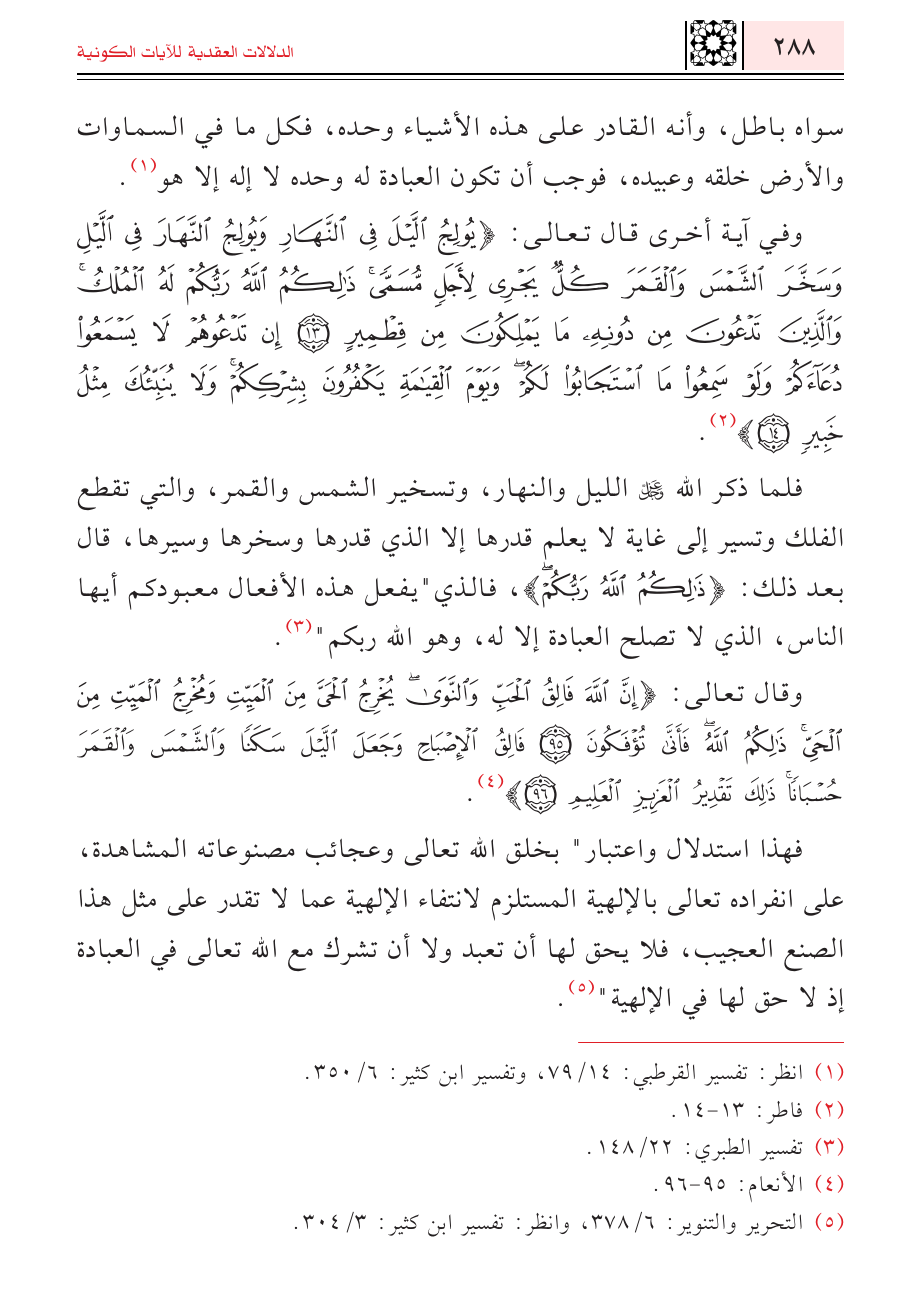 ٢٨٨
الدلالات العقدية للآيات الكونية
سواه باطل، وأنه القادر على هذه الأشياء وحده، فكل ما في السماوات
والأرض خلقه وعبيده، فوجب أن تكون العبادة له وحده لا إله إلا هو(١).
وفي آية أخرى قال تعالى: ﴿يُولِجُ ٱلَّيْلَ فِى ٱلنَّهَارِ وَيُولِجُ ٱلنَّهَارَ فِى ٱلَّيْلِ
وَسَخَّرَ ٱلشَّمْسَ وَٱلْقَمَرَ كُلٌّ يَجْرِى لِأَجَلٍ مُّسَمًّى ۚ ذَٰلِكُمُ ٱللَّهُ رَبُّكُمْ لَهُ ٱلْمُلْكُ ۚ
وَٱلَّذِينَ تَدْعُونَ مِن دُونِهِۦ مَا يَمْلِكُونَ مِن قِطْمِيرٍ ۝١٣ إِن تَدْعُوهُمْ لَا يَسْمَعُوا۟
دُعَآءَكُمْ وَلَوْ سَمِعُوا۟ مَا ٱسْتَجَابُوا۟ لَكُمْ ۖ وَيَوْمَ ٱلْقِيَٰمَةِ يَكْفُرُونَ بِشِرْكِكُمْ ۚ وَلَا يُنَبِّئُكَ مِثْلُ
خَبِيرٍ ۝١٤﴾(٢).
فلما ذكر الله ﷿ الليل والنهار، وتسخير الشمس والقمر، والتي تقطع
الفلك وتسير إلى غاية لا يعلم قدرها إلا الذي قدرها وسخرها وسيرها، قال
بعد ذلك: ﴿ذَٰلِكُمُ ٱللَّهُ رَبُّكُمْ ۖ﴾، فالذي "يفعل هذه الأفعال معبودكم أيها
الناس، الذي لا تصلح العبادة إلا له، وهو الله ربكم"(٣).
وقال تعالى: ﴿إِنَّ ٱللَّهَ فَالِقُ ٱلْحَبِّ وَٱلنَّوَىٰ ۖ يُخْرِجُ ٱلْحَىَّ مِنَ ٱلْمَيِّتِ وَمُخْرِجُ ٱلْمَيِّتِ مِنَ
ٱلْحَىِّ ۚ ذَٰلِكُمُ ٱللَّهُ ۖ فَأَنَّىٰ تُؤْفَكُونَ ۝٩٥ فَالِقُ ٱلْإِصْبَاحِ وَجَعَلَ ٱلَّيْلَ سَكَنًا وَٱلشَّمْسَ وَٱلْقَمَرَ
حُسْبَانًا ۚ ذَٰلِكَ تَقْدِيرُ ٱلْعَزِيزِ ٱلْعَلِيمِ ۝٩٦﴾(٤).
فهذا استدلال واعتبار" بخلق الله تعالى وعجائب مصنوعاته المشاهدة،
على انفراده تعالى بالإلهية المستلزم لانتفاء الإلهية عما لا تقدر على مثل هذا
الصنع العجيب، فلا يحق لها أن تعبد ولا أن تشرك مع الله تعالى في العبادة
إذ لا حق لها في الإلهية"(٥).
(١) انظر: تفسير القرطبي: ٧٩/١٤، وتفسير ابن كثير: ٣٥٠/٦.
(٢) فاطر: ١٣-١٤.
(٣) تفسير الطبري: ١٤٨/٢٢.
(٤) الأنعام: ٩٥-٩٦.
(٥) التحرير والتنوير: ٣٧٨/٦، وانظر: تفسير ابن كثير: ٣٠٤/٣.